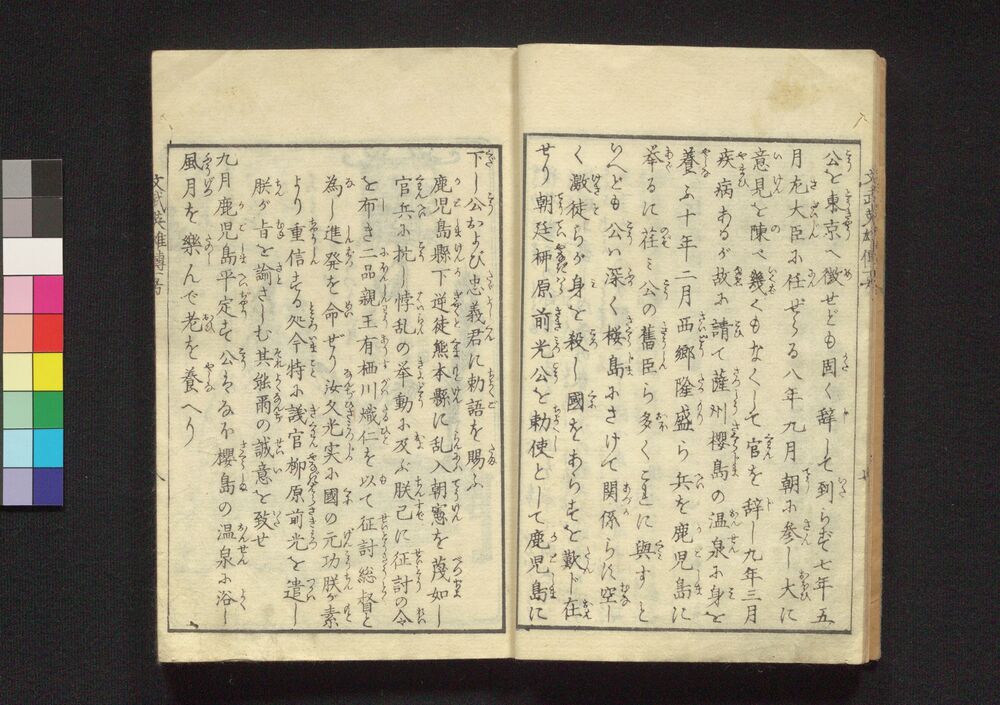 公を東京へ徴せども固く辞して到らず七年五
月左大臣に任ぜらる八年九月朝に参し大に
意見を陳べ幾くもなくして官を辞し九年三月
疾病あるが故に請て薩州櫻島の温泉に身を
養ふ十年二月西郷隆盛ら兵を鹿児島に
挙るに荘ミ公の舊臣ら多くこれに與すと
いへども公ハ深く櫻島にさけて関係らに空し
く激徒らが身を殺し國をあらすを歎ド在
せり朝廷柳原前光公を勅使として鹿児島に
下し公および忠義君に勅語を賜ふ
鹿児島縣下逆徒熊本縣に乱入朝憲を蔑如し
官兵に抗し悖乱の挙動に及ぶ朕已に征討の令
を布き二品親王有栖川熾仁を以て征討総督と
為し進発を命ぜり汝久光実に國の元功朕が素
より重信する処今特に議官柳原前光を遣し
朕が旨を諭さしむ其能爾の誠意を致せ
九月鹿児島平定す公ハなほ櫻島の温泉に浴し
風月を樂んで老を養へり
文武英雄傳一号
八